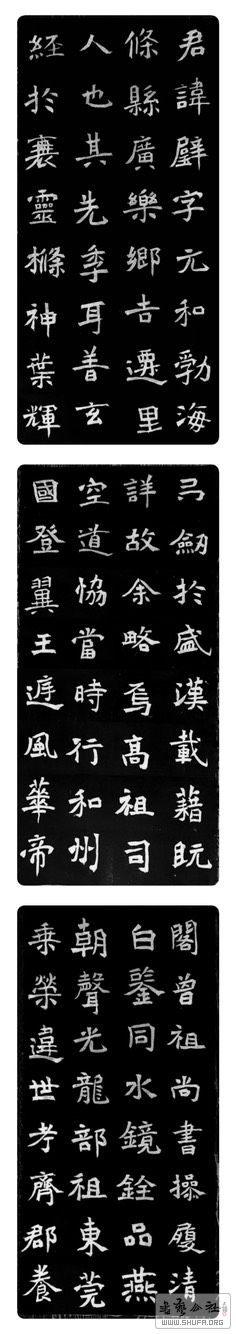 君諱璧字元和勃海
條縣廣樂鄉吉遷里
人也其先季耳善玄
經於襄靈樤神葉輝
弓劒於盛漢載藉既
詳故余略焉高祖司
空道恊當時行和州
國登翼王遅風華帝
閣曾祖尚書操履清
白鍳同水鏡銓品燕
朝聲光龍部祖東莞
乗榮違世考齊郡養
WWW.SHUFA.ORG